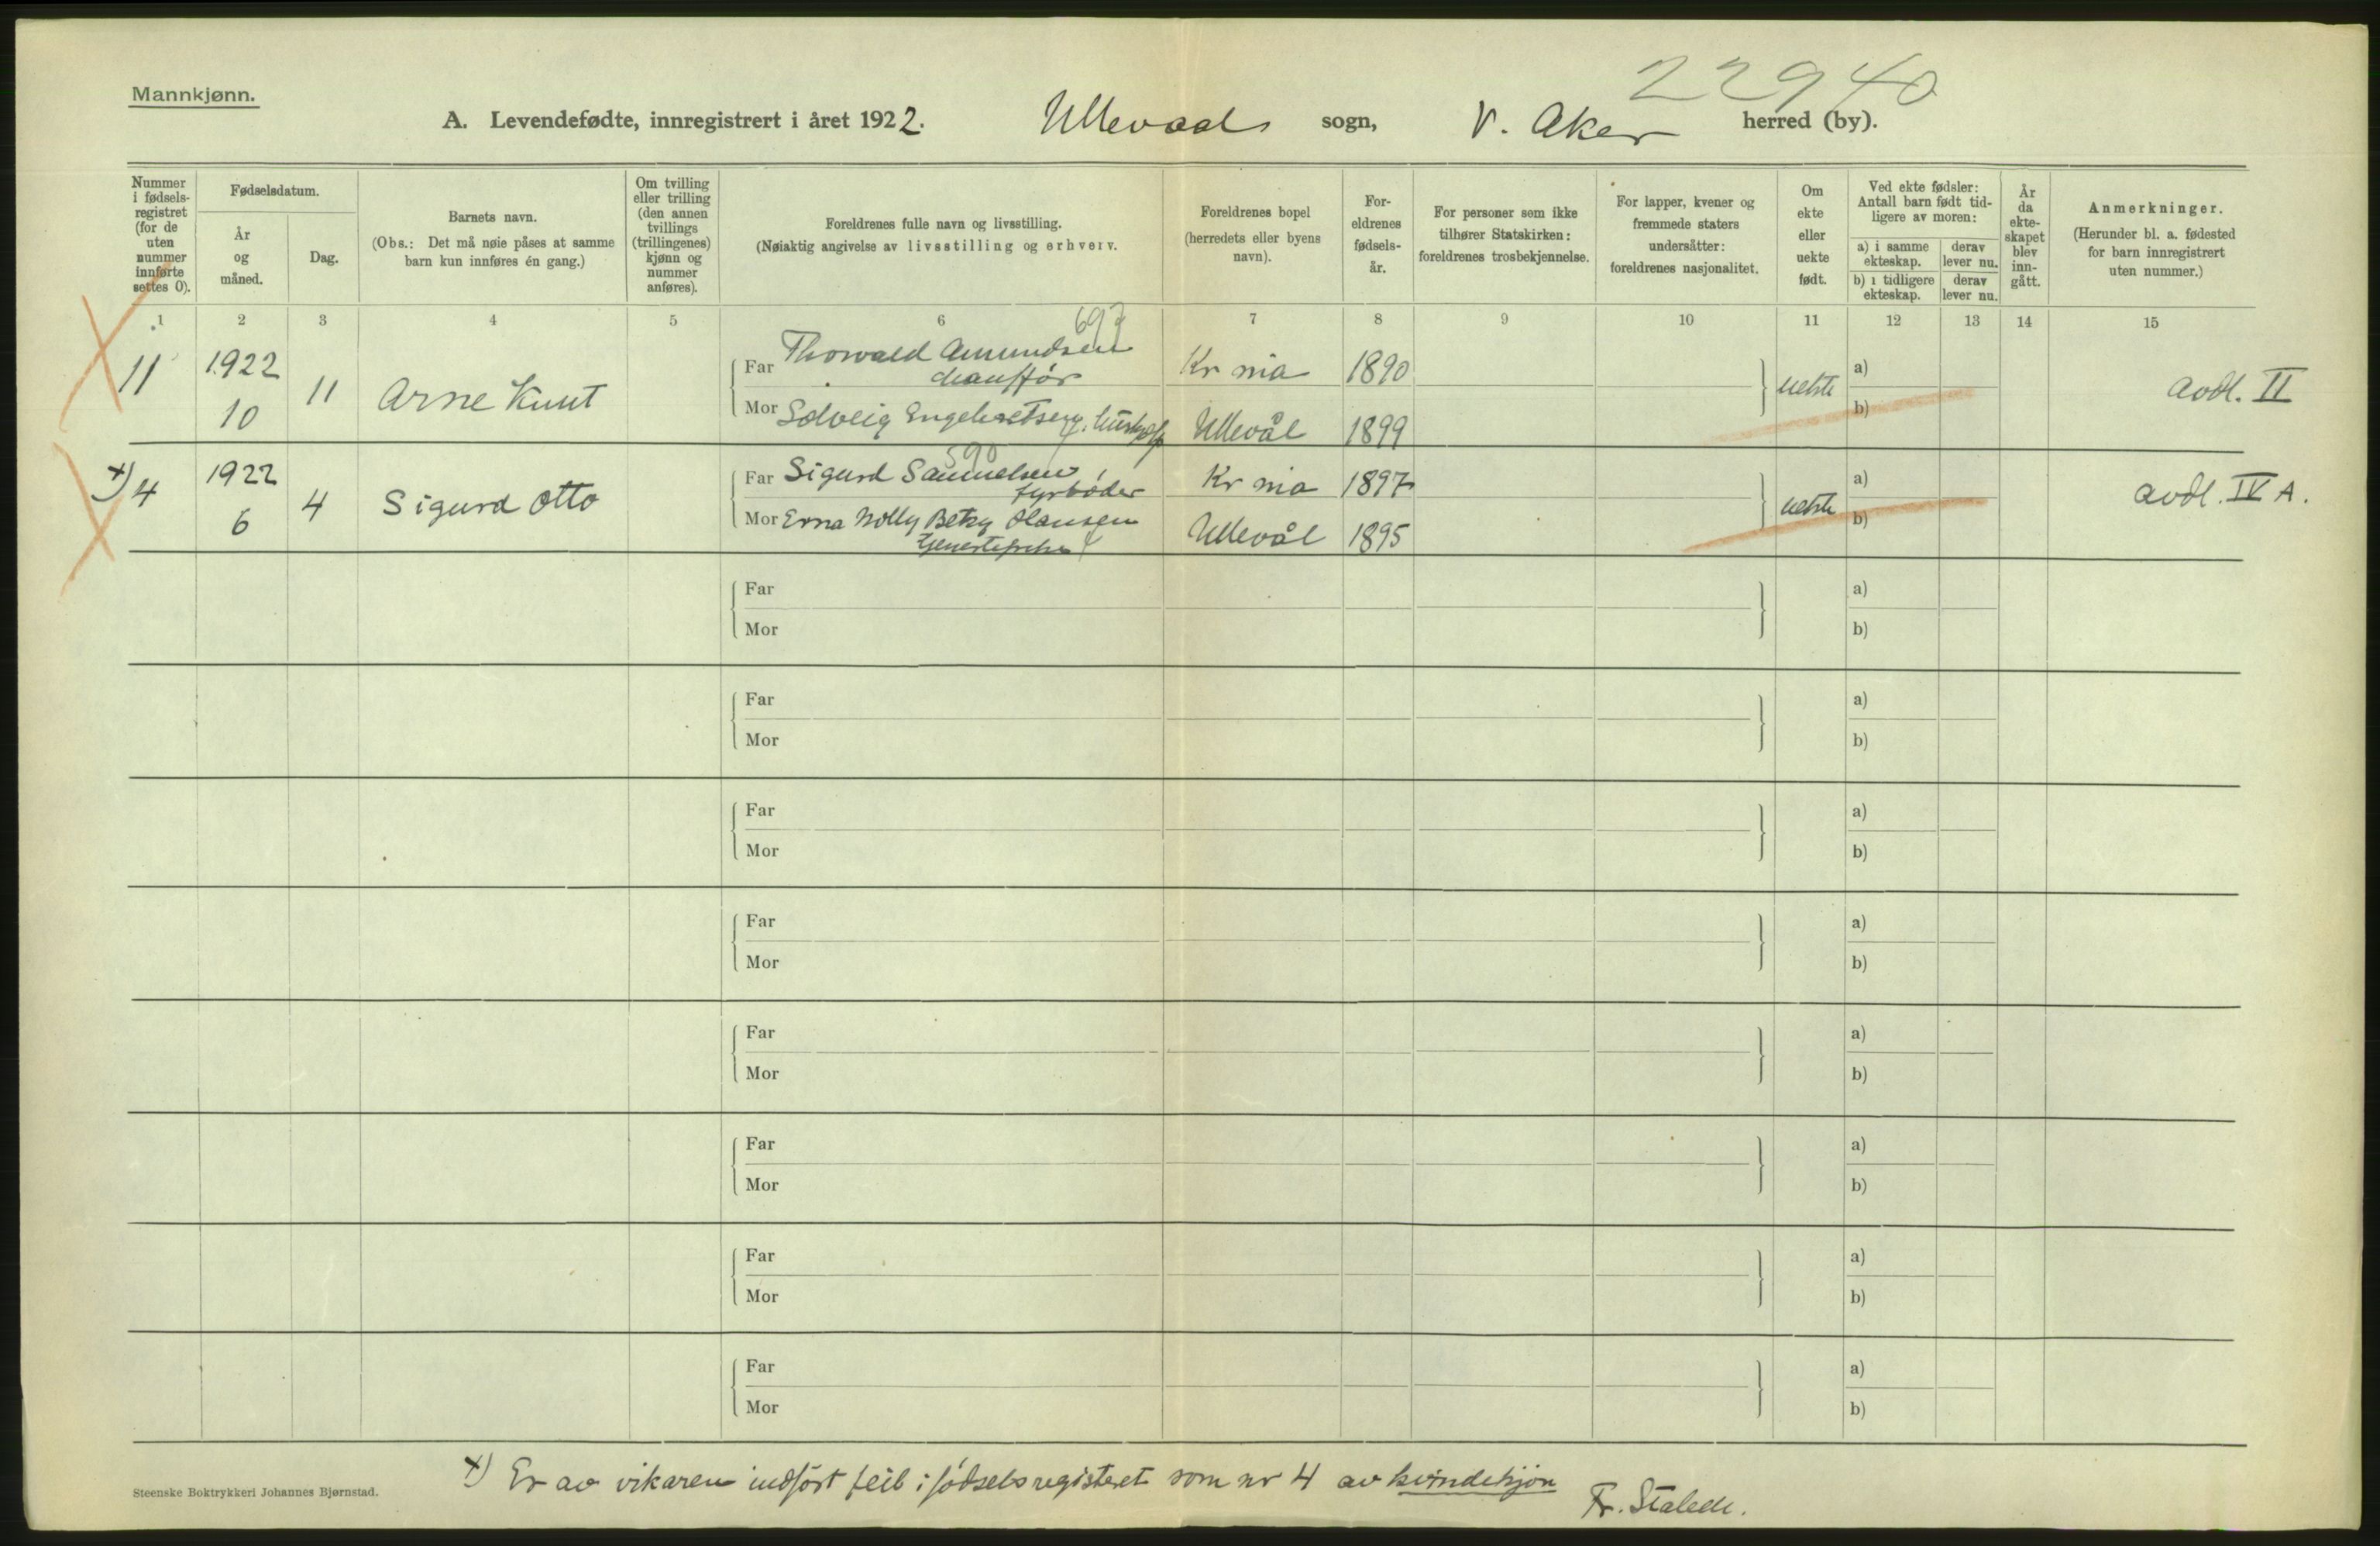 22940
Mannkjønn.
A. Levendefødte, innregistrert i året 1922. Ullevaal sogn, V. Aker herred (by).
Nummer i fødsels-registret (for de uten nummer innførte settes 0).
Fødselsdatum.
År og måned.
Dag.
Barnets navn.
(Obs.: Det må nøie påses at samme barn kun innføres én gang.)
Om tvilling eller trilling (den annen tvillings (trillingenes) kjønn og nummer anføres).
Foreldrenes fulle navn og livsstilling.
(Nøiaktig angivelse av livsstilling og erhverv.
Foreldrenes bopel (herredets eller byens navn).
For-eldrenes fødsels-år.
For personer som ikke tilhører Statskirken: foreldrenes trosbekjennelse.
For lapper, kvener og fremmede staters undersåtter: foreldrenes nasjonalitet.
Om ekte eller uekte født.
Ved ekte fødsler: Antall barn født tid-ligere av moren:
a) i samme ekteskap.
derav lever nu.
b) i tidligere ekteskap.
derav lever nu.
År da ekte-skapet blev inn-gått.
Anmerkninger.
(Herunder bl. a. fødested for barn innregistrert uten nummer.)
1 2 3 4 5 6 7 8 9 10 11 12 13 14 15
697
11 1922 10 11 Arne Knut
Far Thorvald Amundsen chauffør Kr nia 1890
Mor Solveig Engebretsen, Ullevål 1899
uekte a) b) avdl. II
590
x) 4 1922 6 4 Sigurd Otto
Far Sigurd Samuelsen, fyrbøder Kr nia 1897
Mor Erna Nolly Betzy Hansen Ullevål 1895
uekte a) b) avdl. IV A.
Far a)
Mor b)
Far a)
Mor b)
Far a)
Mor b)
Far a)
Mor b)
Far a)
Mor b)
Far a)
Mor b)
Far a)
Mor b)
Far a)
Mor b)
x) Er av vikaren indført feil i fødselsregisteret som nr 4 av kvindekjøn
Steenske Boktrykkeri Johannes Bjørnstad.